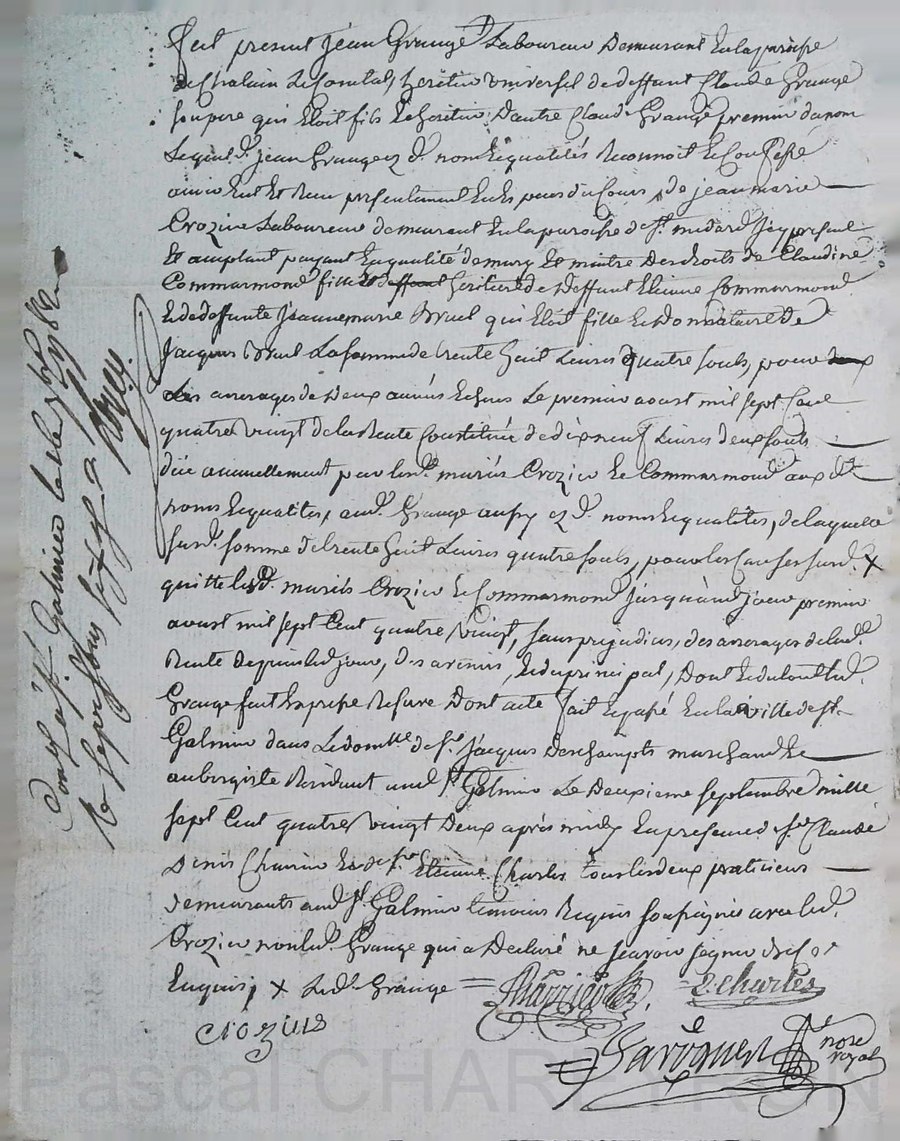 fut present jean Grange Laboureur Demeurant En la paroisse
de Chalain Le Comtal, heritier universel de deffunt Claude Grange
son pere qui Etoit fils Et heritier D'autre Claude Grange premier du nom
Lequel d. jean Grange ez d. noms Et qualités Reconnoit Et Confesse
avoir Eut Et Receu presentement En Especes du Cours, de jean marie
Crozier Laboureur demeurant En la paroisse de St. medard icy present
Et acceptant payant En qualité de mary Et maitre des droits de Claudine
Commarmond fille Et heritiere de deffunt Etienne Commarmond
Et de deffunte Jeanne marie Bruel qui Etoit fille Et Donnataire de
Jacques Bruel La somme de trente huit Livres quatre souls, pour
Les arrerages de Deux années Echues Le premier aoust mil sept Cent
quatre vingt de la Rente Constituée de dix neuf Livres deux souls
düe annuellement par les d. mariés Crozier Et Commarmond aux dt.
noms Et qualités, aud. Grange aussy ez d. noms Et qualités, de laquelle
susd. somme de trente huit Livres quatre souls, pour les Causes susd. x
quitte lesd. mariés Crozier Et Commarmond jusqu'aud. jour premier
aoust mil sept Cent quatre vingt, sans prejudice, des arrerages de lad.
Rente depuis led. jour, des avenir, Et du principal, Dont Et du tout led.
Grange fait Expresse Reserve Dont acte fait Et passé En la ville de St.
Galmier dans Le dom.lle de Sr. jacques Deschamps marchand Et
aubergiste Residant aud. St. Galmier Le Deuxieme septembre mille
sept Cent quatre vingt Deux après midy En presence de Sr. Claude
Denis Et de Sr. Etienne Charles tous les deux praticiens
demeurants aud. St. Galmier temoins Requis soussignés avec led.
Crozier non led. Grange qui a Declaré ne scavoir signer de ce
Enquis, x Led. Grange =
E. Charles
Crozier
nore
royal
Galmier